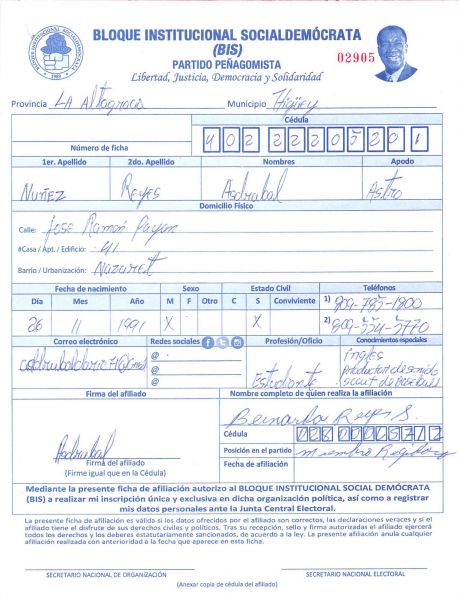 BLOQUE INSTITUCIONAL SOCIALDEMÓCRATA
(BIS)
PARTIDO PEÑAGOMISTA
Libertad, Justicia, Democracia y Solidaridad
02905
Provincia La Altagracia Municipio Higüey
Cédula
Número de ficha 402 2220520 1
1er. Apellido 2do. Apellido Nombres Apodo
Nuñez Reyes Asdrubal Astro
Domicilio Físico
Calle: Jose Ramón Payan
#Casa / Apt. / Edificio: 41
Barrio / Urbanización: Nazaret
Fecha de nacimiento Sexo Estado Civil Teléfonos
Día Mes Año M F Otro C S Conviviente 1) 809-785-1800
26 11 1991 X X 2) 809-554-5770
Correo electrónico Redes sociales Profesión/Oficio Conocimientos especiales
@
@
@
Estudiante
ingles
productor de sonido
scout de baseball
Firma del afiliado Nombre completo de quien realiza la afiliación
Bernardo Reyes S.
Cédula
Asdrubal
Posición en el partido miembro
Firma del afiliado
(Firma igual que en la Cédula)
Fecha de afiliación
Mediante la presente ficha de afiliación autorizo al BLOQUE INSTITUCIONAL SOCIAL DEMÓCRATA
(BIS) a realizar mi inscripción única y exclusiva en dicha organización política, así como a registrar
mis datos personales ante la Junta Central Electoral.
La presente ficha de afiliación es válido si los datos ofrecidos por el afiliado son correctos, las declaraciones veraces y si el
afiliado tiene el disfrute de sus derechos civiles y políticos. Tras su recesión, sello y firma autorizadas el afiliado ejercerá
todos los derechos y los deberes estatutariamente sancionados, de acuerdo a la ley. La presente afiliación anula cualquier
afiliación realizada con anterioridad a la fecha que aparece en esta ficha.
SECRETARIO NACIONAL DE ORGANIZACIÓN SECRETARIO NACIONAL ELECTORAL
(Anexar copia de cédula del afiliado)